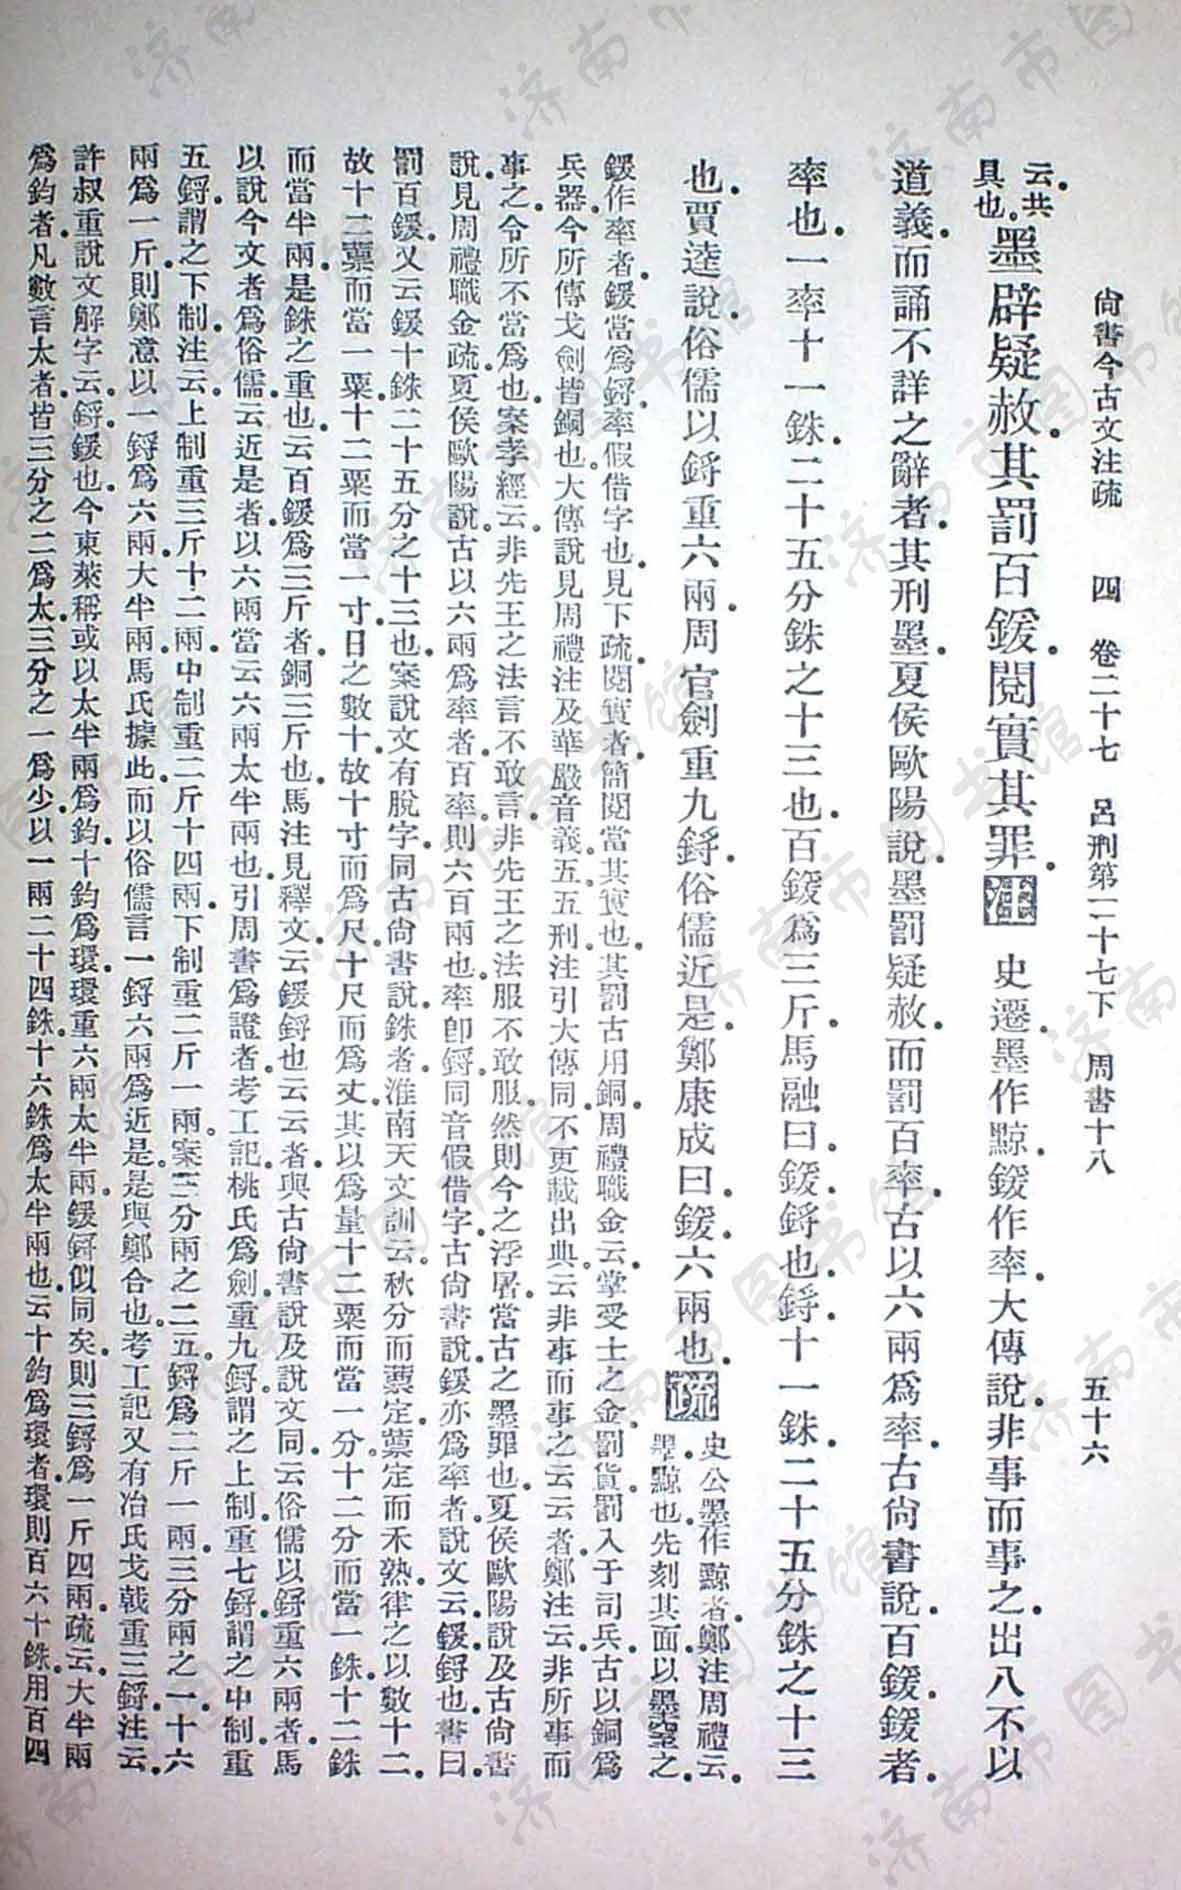 尙書今古文注疏　四　卷二十七　呂刑第二十七下　周書十八　五十六
云。共具也。墨辟疑赦。其罰百鍰。閱實其罪。注　史遷墨作黥。鍰作率。大傳說。非事而事之。出入不以
道義。而誦不詳之辭者。其刑墨。夏侯歐陽說。墨罰疑赦。而罰百率。古以六兩爲率。古尙書說。百鍰。鍰者。
率也。一率十一銖。二十五分銖之十三也。百鍰爲三斤。馬融曰。鍰。鋝也。鋝。十一銖。二十五分銖之十三
也。賈逵說。俗儒以鋝重六兩。周官劍重九鋝。俗儒近是。鄭康成曰。鍰。六兩也。疏　史公墨作黥者。鄭注周禮云。墨。黥也。先刻其面。以墨窒之。
鍰作率者。鍰當爲鋝。率假借字也。見下疏。閱實者。簡閱當其實也。其罰古用銅。周禮職金云。掌受士之金罰貨罰。入于司兵。古以銅爲
兵器。今所傳戈劍皆銅也。大傳說見周禮注及華嚴音義。五五刑注引大傳同。不更載出典。云非事而事之云云者。鄭注云。非所事而
事之。令所不當爲也。案孝經云。非先王之法言不敢言。非先王之法服不敢服。然則今之浮屠。當古之墨罪也。夏侯歐陽說及古尙書
說。見周禮職金疏。夏侯歐陽說。古以六兩爲率者。百率。則六百兩也。率卽鋝。同音假借字。古尙書說。鍰亦爲率者。說文云。鍰。鋝也。書曰。
罰百鍰。又云。鍰十銖二十五分之十三也。案說文有脫字。同古尙書說。銖者。淮南天文訓云。秋分而蔈定。蔈定而禾熟。律之以數十二。
故十二蔈而當一粟。十二粟而當一寸。日之數十。故十寸而爲尺。十尺而爲丈。其以爲量。十二粟而當一分。十二分而當一銖。十二銖
而當半兩。是銖之重也。云百鍰爲三斤者。銅三斤也。馬注見釋文。云鍰鋝也云云者。與古尙書說及說文同。云俗儒以鋝重六兩者。馬
以說今文者爲俗儒。云近是者。以六兩當云六兩太半兩也。引周書爲證者。考工記。桃氏爲劍。重九鋝。謂之上制。重七鋝。謂之中制。重
五鋝。謂之下制。注云。上制重三斤十二兩。中制重二斤十四兩。下制重二斤一兩。案三分兩之二。五鋝爲二斤一兩。三分兩之一。十六
兩爲一斤。則鄭意以一鋝爲六兩。大半兩。馬氏據此。而以俗儒言一鋝六兩爲近是。是與鄭合也。考工記又有冶氏戈戟重三鋝。注云。
許叔重說文解字云。鋝。鍰也。今東萊稱或以太半兩爲鈞。十鈞爲環。環重六兩太半兩。鍰鋝似同矣。則三鋝爲一斤四兩。疏云。大半兩
爲鈞者。凡數言太者。皆三分之二爲太。三分之一爲少。以一兩二十四銖。十六銖爲太半兩也。云十鈞爲環者。環則百六十銖。用百四